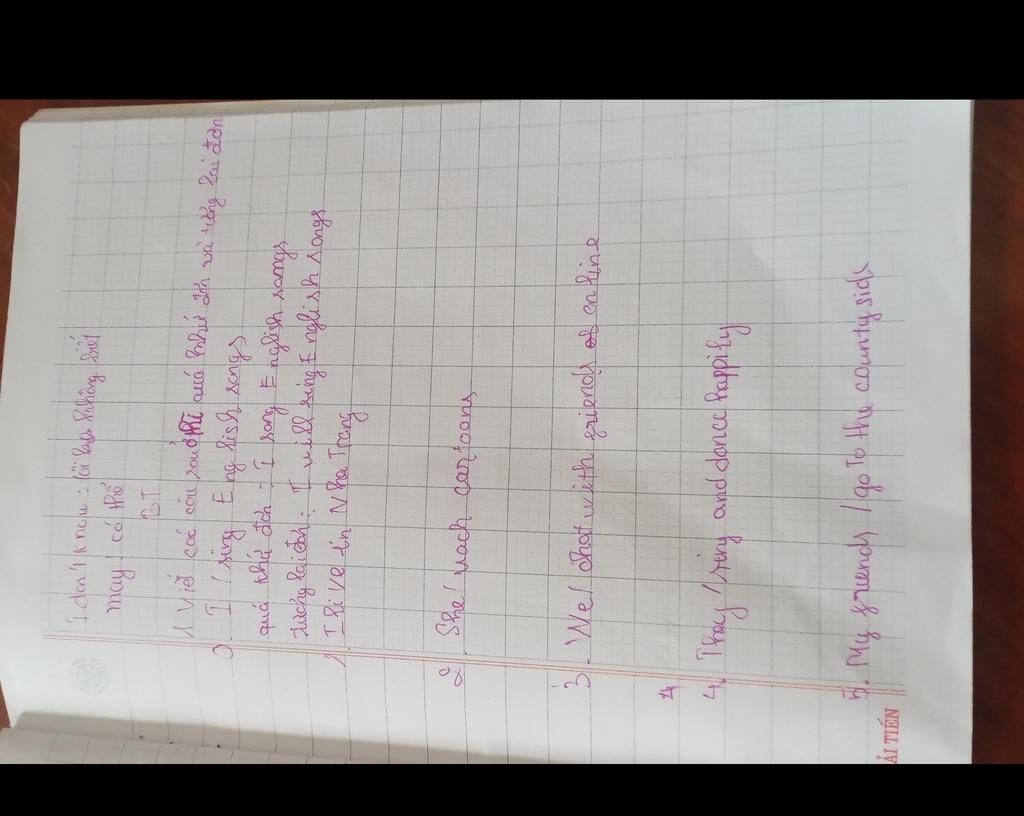 I don't know: tôi ko không biết
may: có thể
BT
1 Viết các câu sau thì quá khứ đơn và tương lai đơn
0. I / sing English songs
quá khứ đơn: I sang English songs
tương lai đơn: I will sing English songs
1. I live in Nha Trang
2. She/ wach cartoons
3. We/ chat with friends online
4
4. They / sing and dance happify
5. My friends / go to the county side
ẢI TIẾN